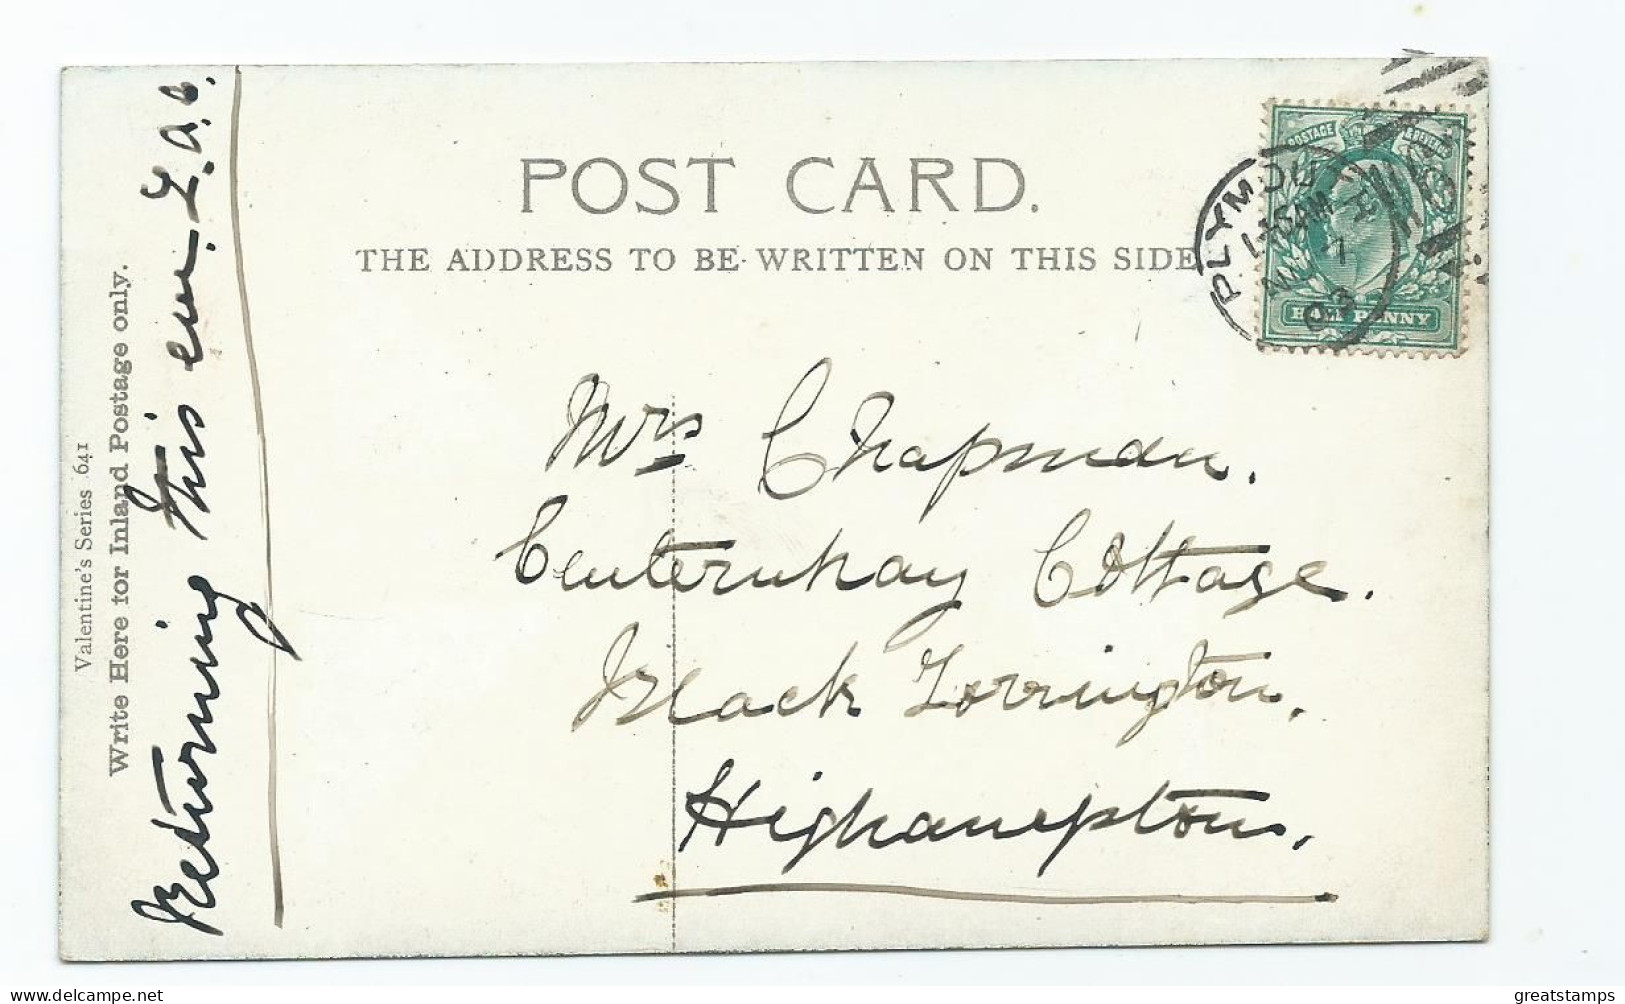 POST CARD.
THE ADDRESS TO BE WRITTEN ON THIS SIDE
Valentine's Series 641
Write Here for Inland Postage only.
Returning this eve. L.a.C.
POSTAGE
HALF PENNY
PLYMOU
03
Mrs Chapman.
Centernhay Cottage.
Black Torrington.
Highampton.
greatstamps
delcampe.net